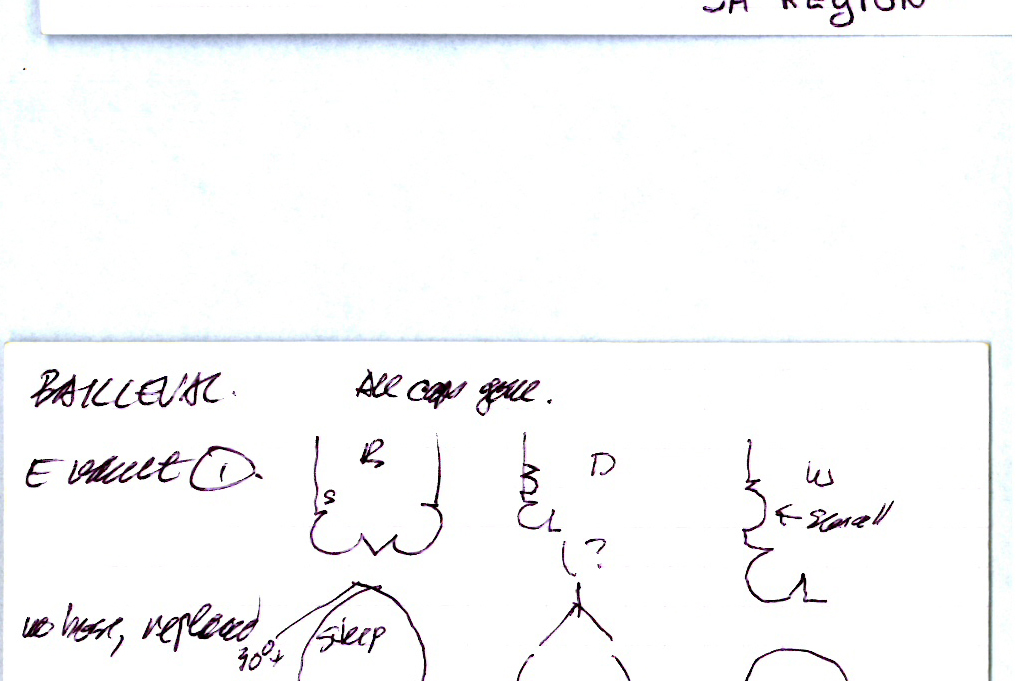 SA REGION
BAILLEVAL. All caps gone.
E vault 1. R D W
S
← small
?
no base, replaced
30°+ steep